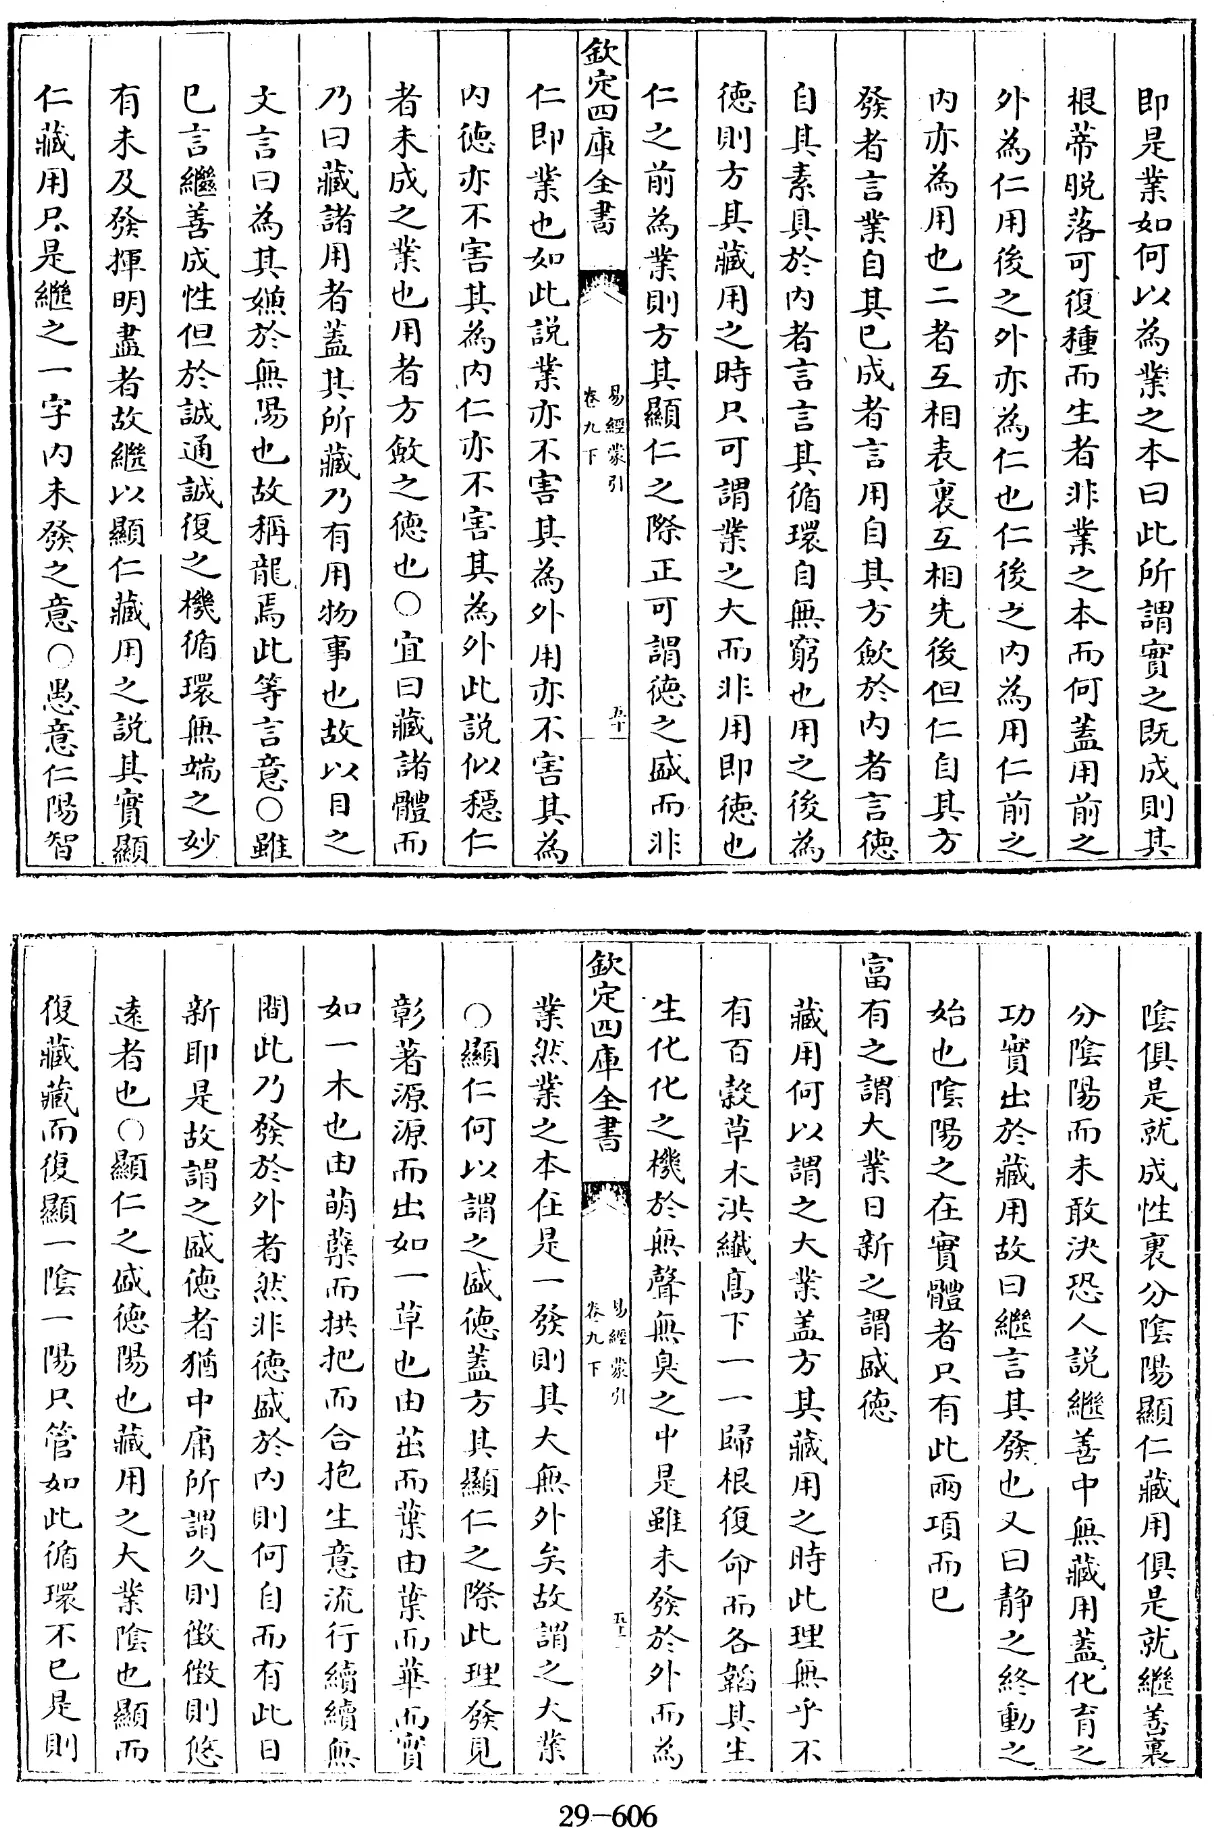 即是業如何以為業之本曰此所謂實之既成則其
根蒂脱落可復種而生者非業之本而何蓋用前之
外為仁用後之外亦為仁也仁後之内為用仁前之
内亦為用也二者互相表裏互相先後但仁自其方
發者言業自其已成者言用自其方歛於内者言徳
自其素具於内者言言其循環自無窮也用之後為
徳則方其藏用之時只可謂業之大而非用即徳也
仁之前為業則方其顯仁之際正可謂徳之盛而非
欽定四庫全書
易經蒙引
卷九下
五十
仁即業也如此説業亦不害其為外用亦不害其為
内徳亦不害其為内仁亦不害其為外此説似穩仁
者未成之業也用者方斂之徳也○宜曰藏諸體而
乃曰藏諸用者蓋其所藏乃有用物事也故以目之
文言曰為其嫌於無陽也故稱龍焉此等言意○雖
已言繼善成性但於誠通誠復之機循環無端之妙
有未及發揮明盡者故繼以顯仁藏用之説其實顯
仁藏用只是繼之一字内未發之意○愚意仁陽智
陰俱是就成性裏分陰陽顯仁藏用俱是就繼善裏
分陰陽而未敢決恐人説繼善中無藏用蓋化育之
功實出於藏用故曰繼言其發也又曰静之終動之
始也陰陽之在實體者只有此兩項而已
富有之謂大業日新之謂盛徳
藏用何以謂之大業蓋方其藏用之時此理無乎不
有百榖草木洪纎高下一一歸根復命而各韜其生
生化化之機於無聲無臭之中是雖未發於外而為
欽定四庫全書
易經蒙引
卷九下
五十一
業然業之本在是一發則其大無外矣故謂之大業
○顯仁何以謂之盛徳蓋方其顯仁之際此理發見
彰著源源而出如一草也由茁而葉由葉而華而實
如一木也由萌蘖而拱把而合抱生意流行續續無
間此乃發於外者然非徳盛於内則何自而有此日
新耶是故謂之盛徳者猶中庸所謂久則徴徴則悠
逺者也○顯仁之盛徳陽也藏用之大業陰也顯而
復藏藏而復顯一陰一陽只管如此循環不已是則
29-606